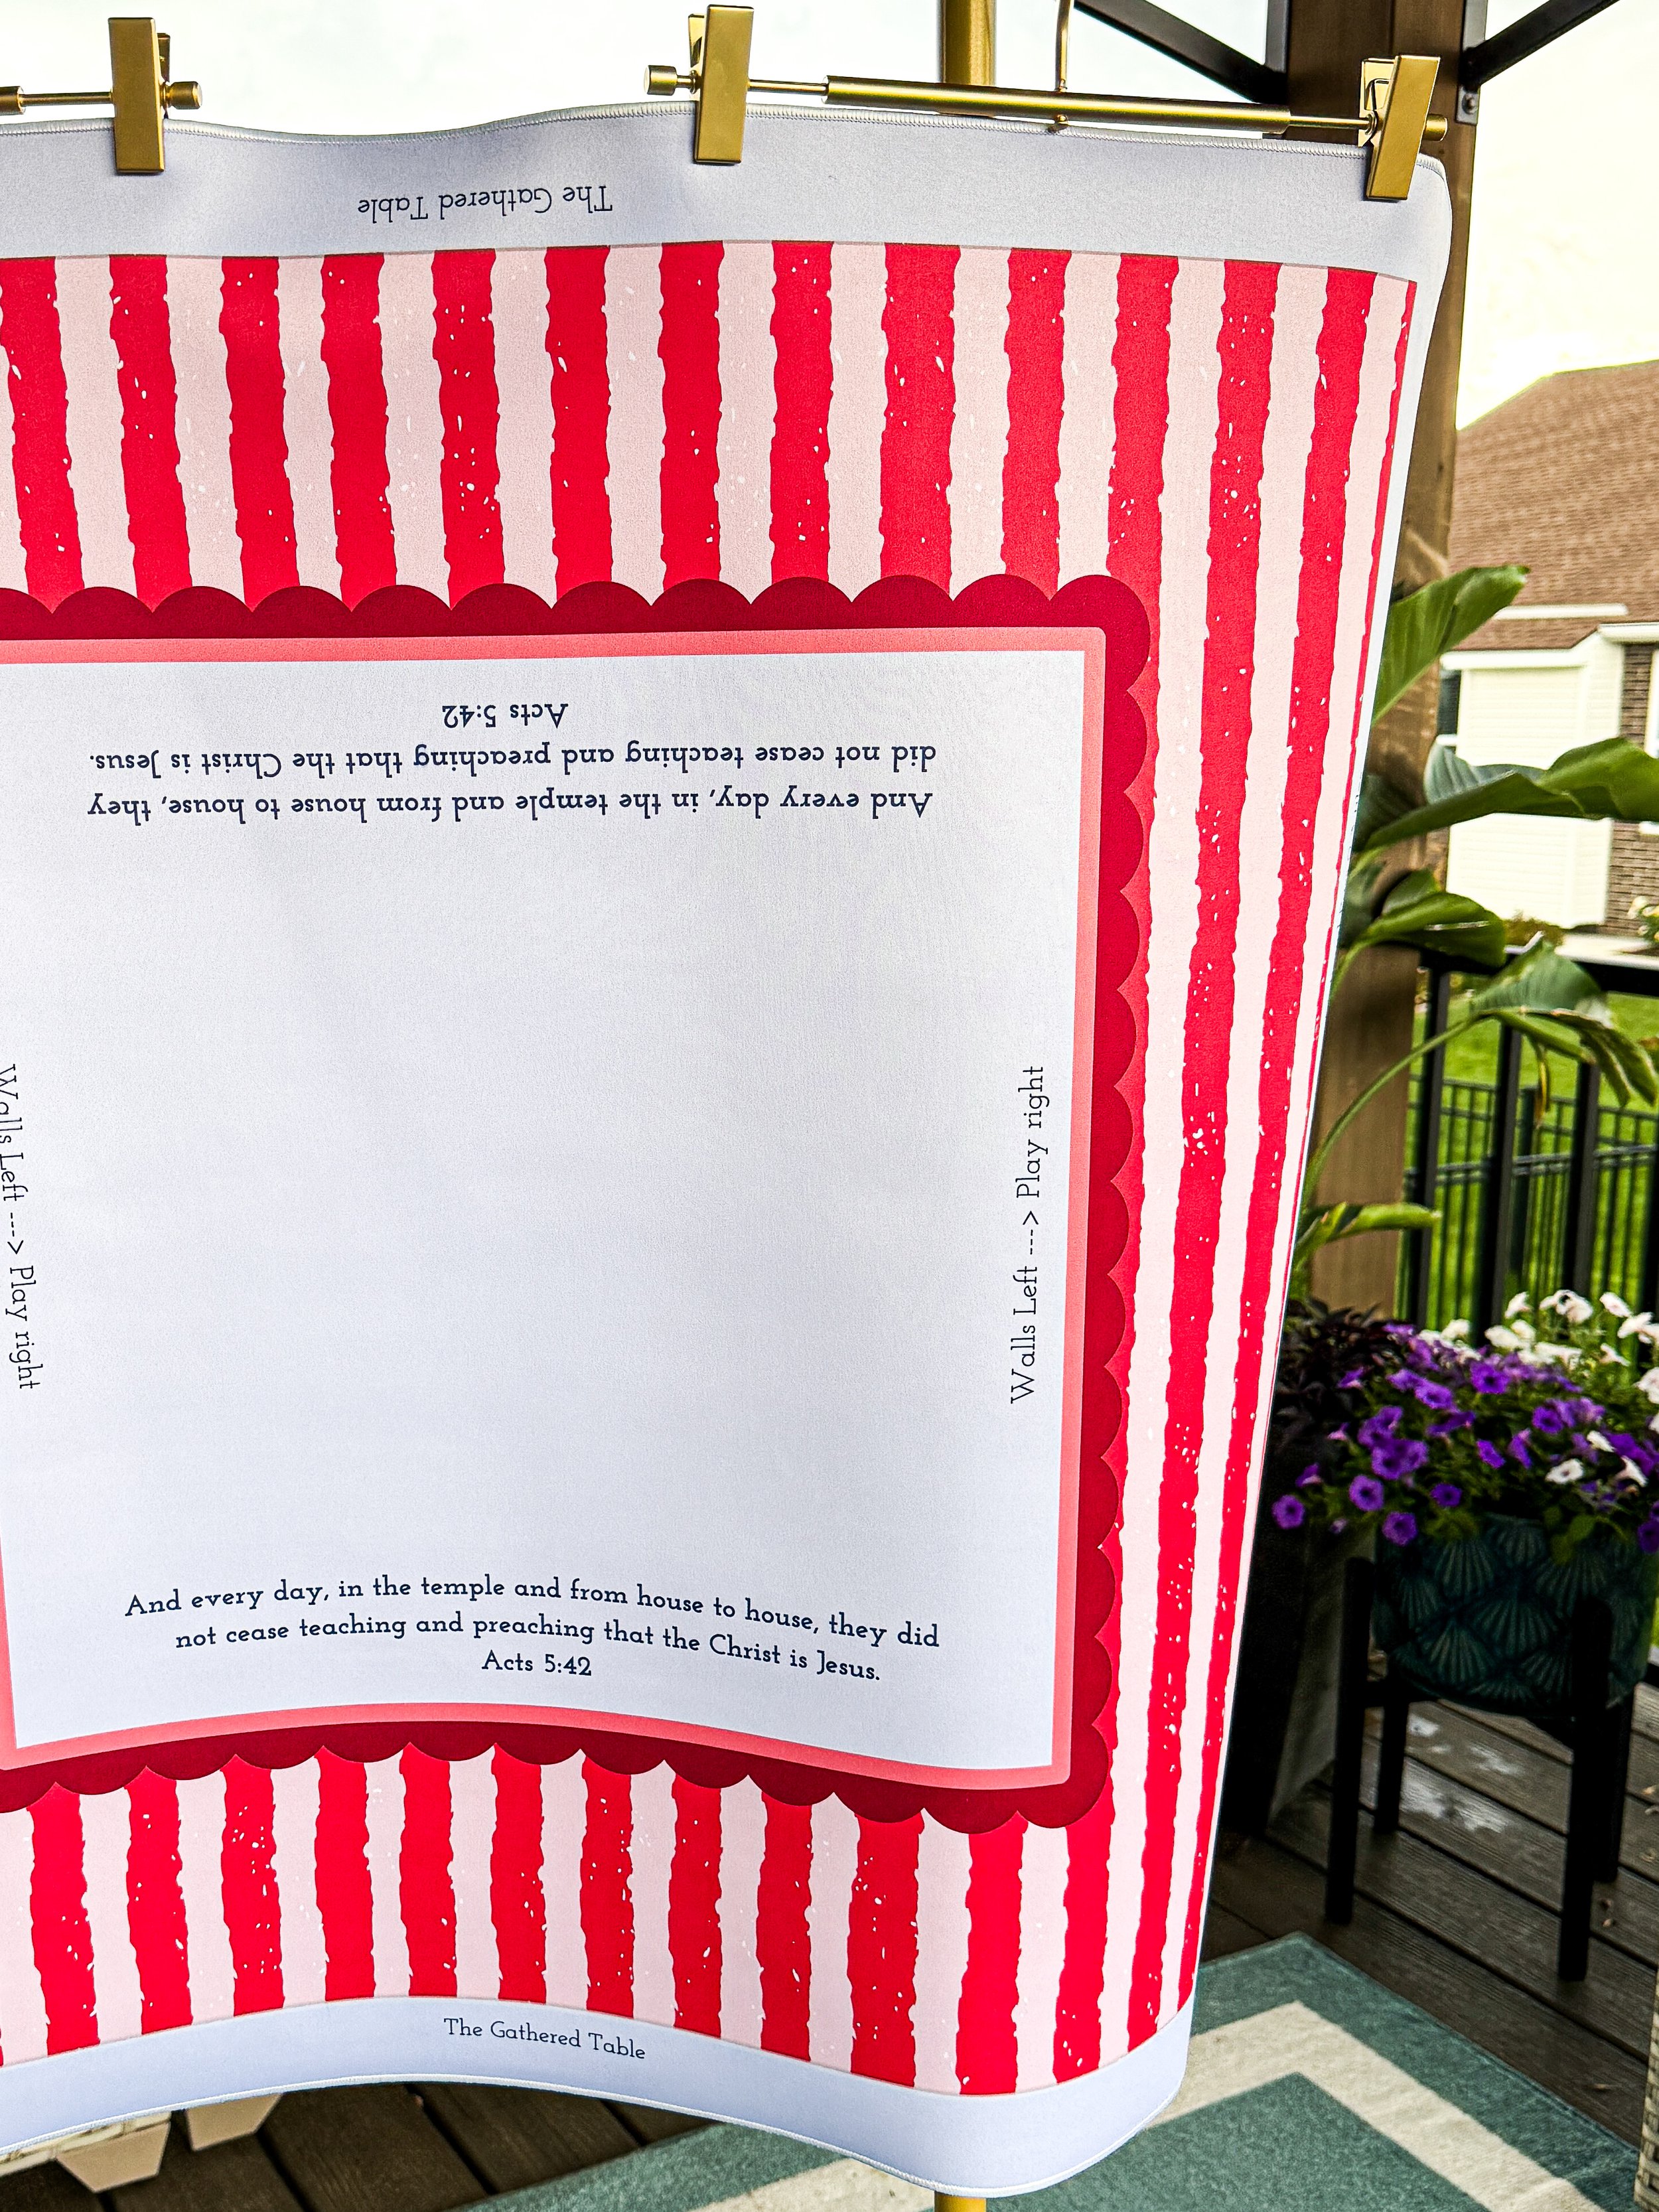 The Gathered Table
And every day, in the temple and from house to house, they
did not cease teaching and preaching that the Christ is Jesus.
Acts 5:42
Walls Left ---> Play right
Walls Left ---> Play right
And every day, in the temple and from house to house, they did
not cease teaching and preaching that the Christ is Jesus.
Acts 5:42
The Gathered Table